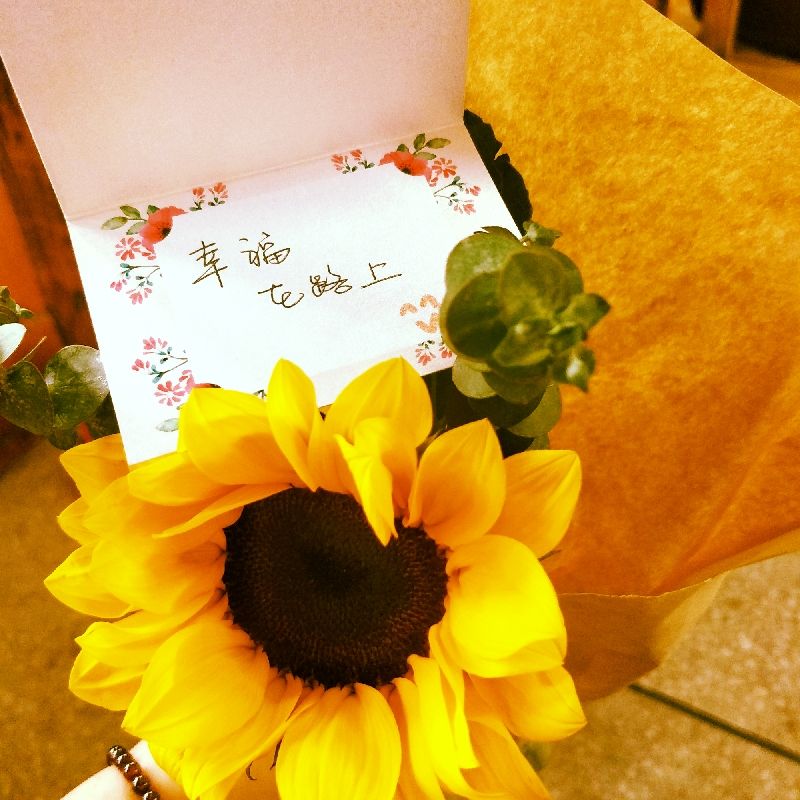 幸福
在路上